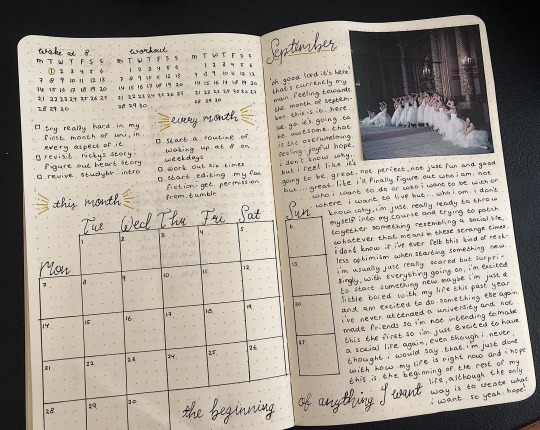 wake at 8
workout
m T W T F S S
1 2 3 4 5 6
7 8 9 10 11 12 13
14 15 16 17 18 19 20
21 22 23 24 25 26 27
28 29 30
m T W T F S S
1 2 3 4 5 6
7 8 9 10 11 12 13
14 15 16 17 18 19 20
21 22 23 24 25 26 27
28 29 30
m T W T F S S
1 2 3 4 5 6
7 8 9 10 11 12 13
14 15 16 17 18 19 20
21 22 23 24 25 26 27
28 29 30
every month
try really hard in my
first month of uni, in
every aspect of it.
revisit nickys story-
figure out heart story
revive studyblr-intro
start a routine of
waking up at 8 on
weekdays
work out six times
start editing my fan
fiction; get permission
from tumblr
this month
Mon Tue Wed Thu Fri Sat
1 2 3 4 5
7 8 9 10 11 12
14 15 16 17 18 19
21 22 23 24 25 26
28 29 30
the beginning
September
oh good lord it's here
that's currently my
main feeling towards
the month of septem-
ber. this is it. here
we go. it's going to
be awesome. that
is the overwhelming
feeling. joyful hope.
i don't know why,
but i feel like it's
going to be great. not perfect, not just fun and good
but... great. like i'll finally figure out who i am. not
who i want to do or who i want to be with or
where i want to live but... who i am. i don't
know why, i'm just really ready to throw
myself into my course and trying to patch
together something resembling a social life,
whatever that means in these strange times.
i don't know if i've ever felt this kind of reck-
less optimism when starting something new.
i'm usually just really scared but surpri-
singly, with everything going on, i'm excited
to start something new. maybe i'm just a
little bored with my life this past year
and am excited to do something else again.
i've never attended a university and not
made friends so i'm not intending to make
this the first so i'm just excited to have
a social life again, even though i never
thought i would say that. i'm just done
with how my life is right now and i hope
this is the beginning of the rest of my
life, although the only
way is to create what
i want. so yeah. hope!
Sun
6
13
20
27
of anything I want